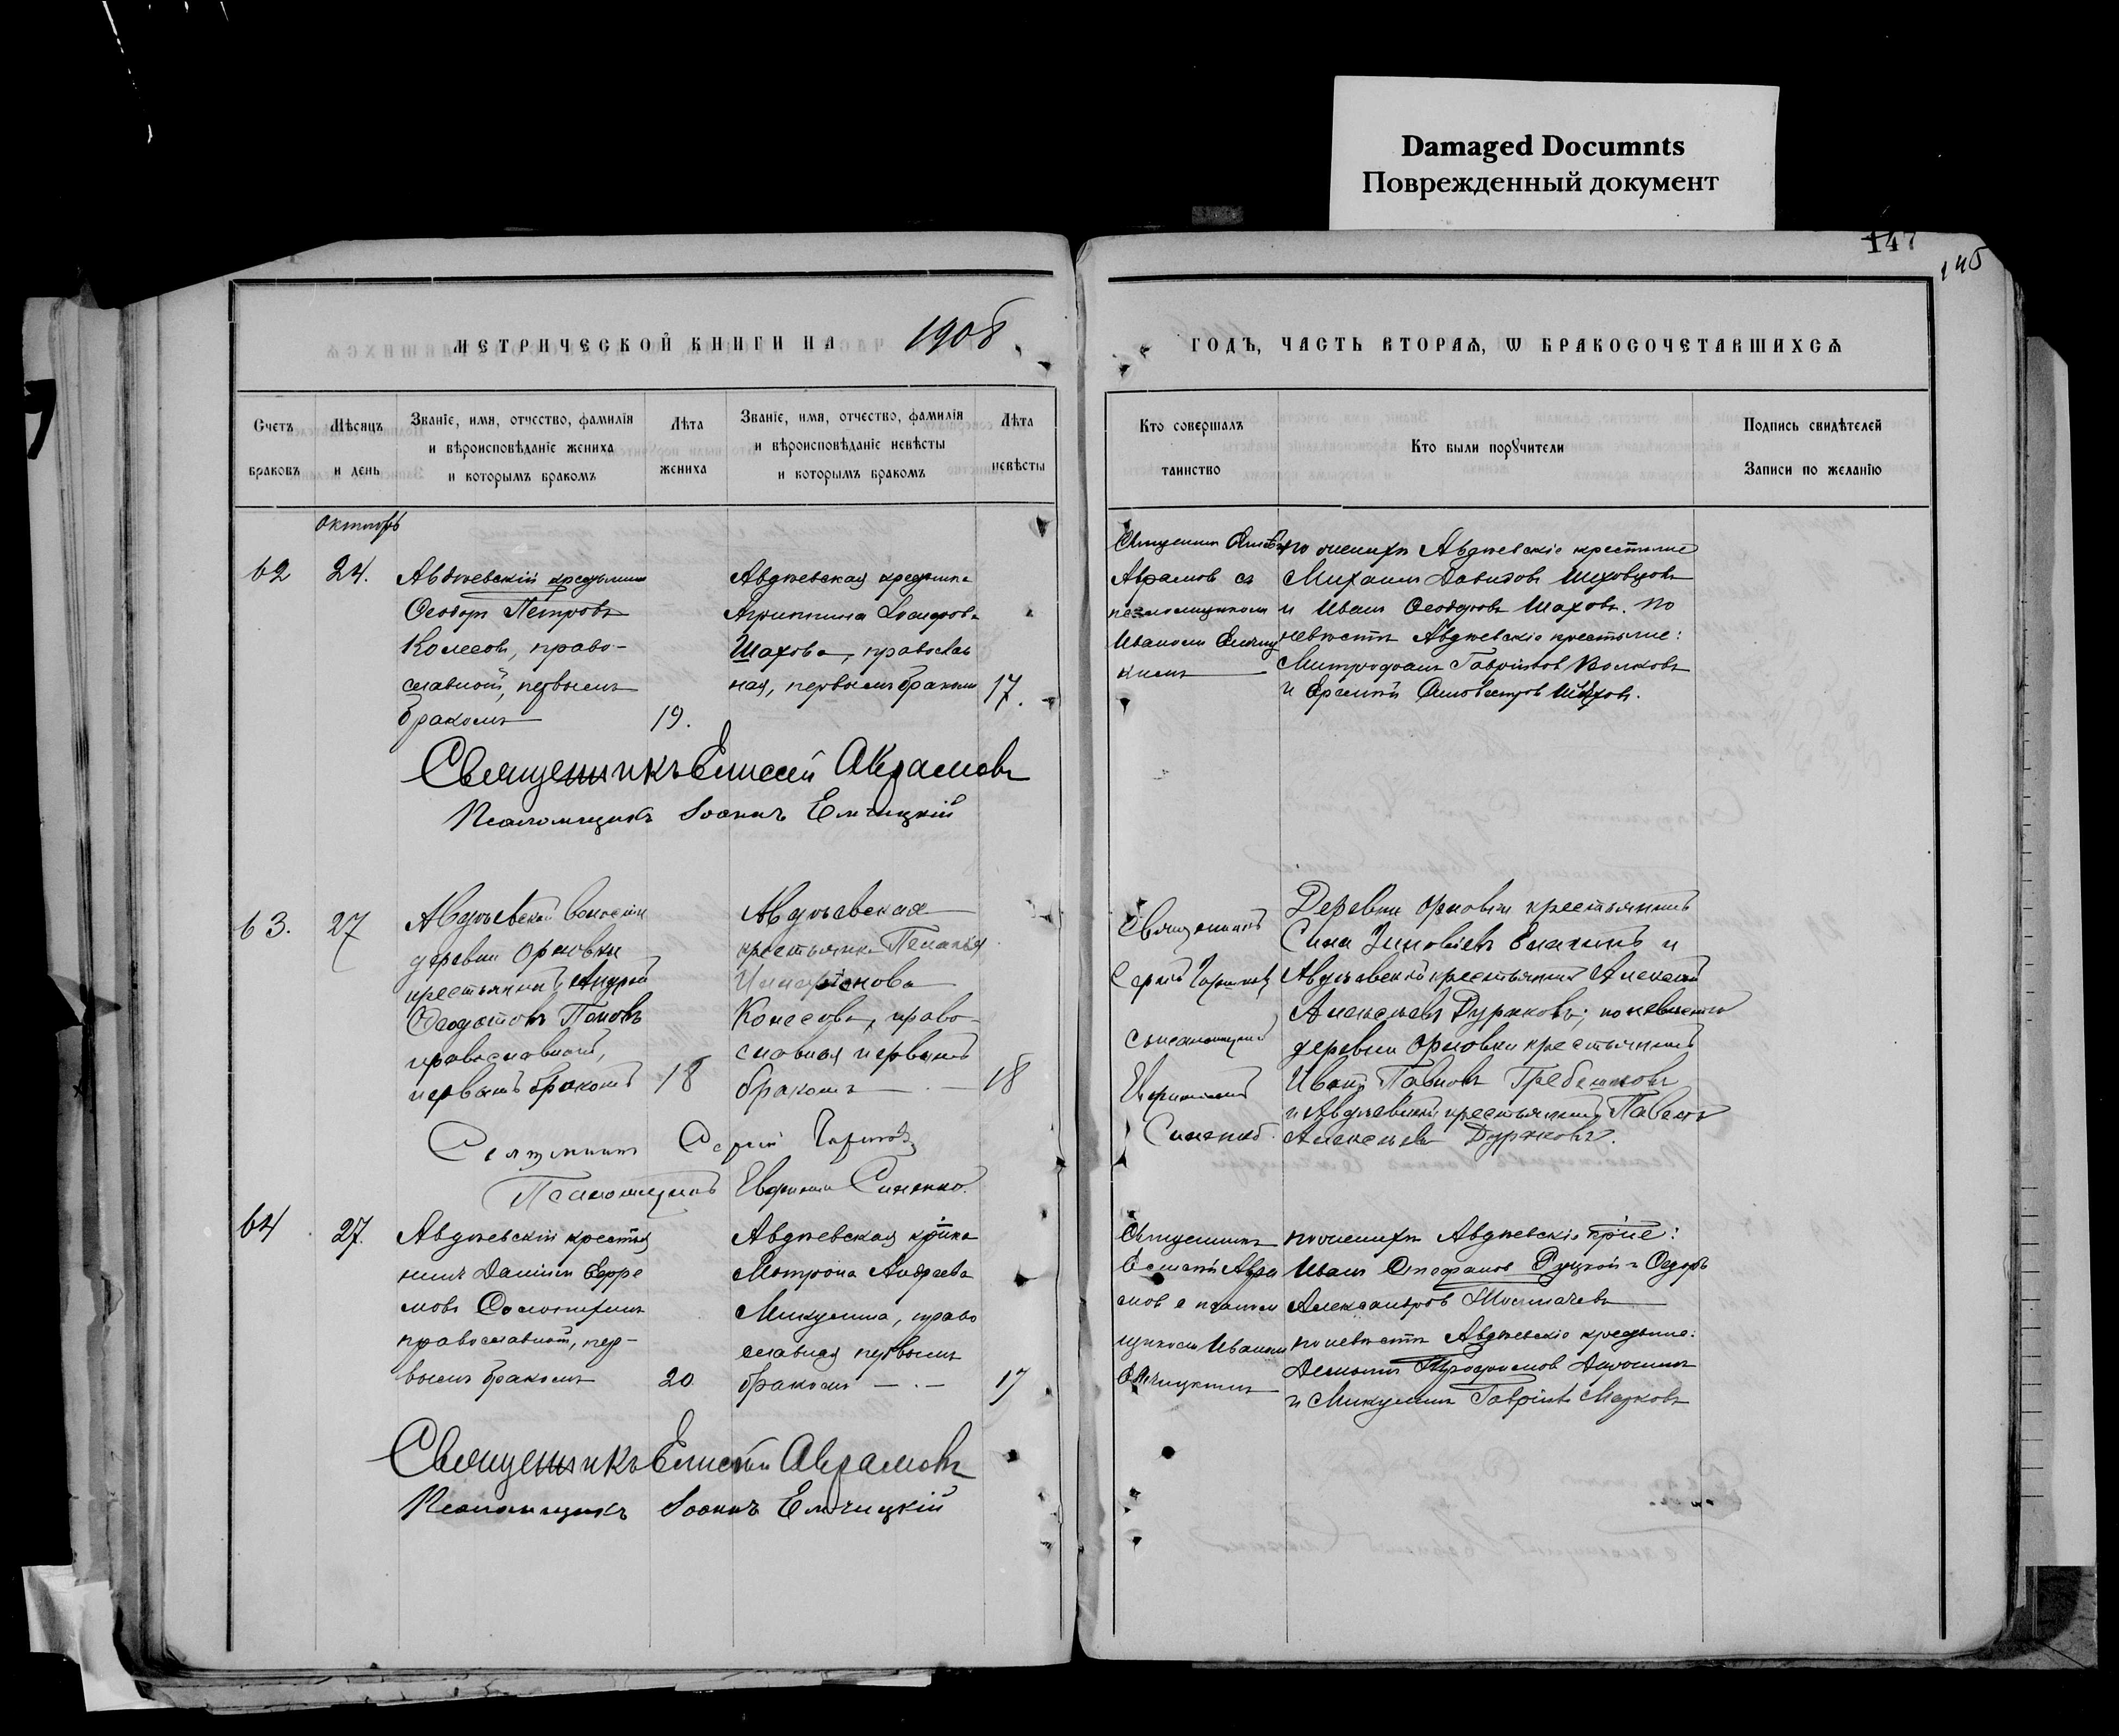 Damaged Documnts
Поврежденный документ
147
145
МЕТРИЧЕСКОЙ КНИГИ НА 1908
ГОДЪ, ЧАСТЬ ВТОРАѦ, Ѡ БРАКОСОЧЕТАВШИХСѦ
Счетъ браковъ
Мѣсяцъ и день
Званіе, имя, отчество, фамилія
и вѣроисповѣданіе жениха
и которымъ бракомъ
Лѣта жениха
Званіе, имя, отчество, фамилія
и вѣроисповѣданіе невѣсты
и которымъ бракомъ
Лѣта невѣсты
Кто совершалъ таинство
Кто были порꙋчители
Подпись свидѣтелей
Записи по желанію
октябрь
62
24.
Авдѣевскій
Ѳеодоръ Петровъ
Колесовъ, право-
славный, первымъ
бракомъ
19.
Авдѣевская
Агриппина
Шахова, православ
ная, первымъ бракомъ
17.
Авдѣевскіе крестьяне
Аврамов съ
Михаилъ Давидовъ Шеховцовъ
псаломщикомъ
и Иванъ Ѳеодоровъ Шаховъ. по
Иваномъ
невѣстѣ Авдѣевскіе крестьяне:
Митрофанъ Гавриловъ Волковъ
Шаховъ.
Священникъ Елисей Аврамовъ
Псаломщикъ Іоаннъ Емчицкій
63.
27
Авдѣевской волости
деревни Орловки
крестьянинъ Андрей
Поповъ
православный,
первымъ бракомъ
18
Авдѣевская
крестьянка Пелагія
Колесова, право-
славная первымъ
бракомъ
18
Священникъ
Сергій
Синенко
Деревни Орловки крестьянинъ
Сила Зиновіевъ и
Авдѣевскій крестьянинъ Алексей
Алексѣевъ Дураковъ; по невѣстѣ
деревни Орловки крестьянинъ
Иванъ Павловъ Гребенковъ
и Авдѣевскій крестьянинъ Павелъ
Алексѣевъ Дураковъ.
Священникъ Сергій
Псаломщикъ Синенко.
64
27.
Авдѣевскій крестья
нинъ Даниилъ Ефре
мовъ
православный, пер-
вымъ бракомъ
20
Авдѣевская
Матрона Андреева
Микулина, право
славная первымъ
бракомъ
17
Священникъ
Елисей Авра
мов с псалом
щикомъ Иваномъ
Емчицкимъ
по женихѣ Авдѣевскіе
Иванъ Стефанов Руцкой и Ѳедоръ
Александров
по невѣстѣ Авдѣевскіе
и Гаврилов Марковъ
Священникъ Елисей Аврамовъ
Псаломщикъ Іоаннъ Емчицкій